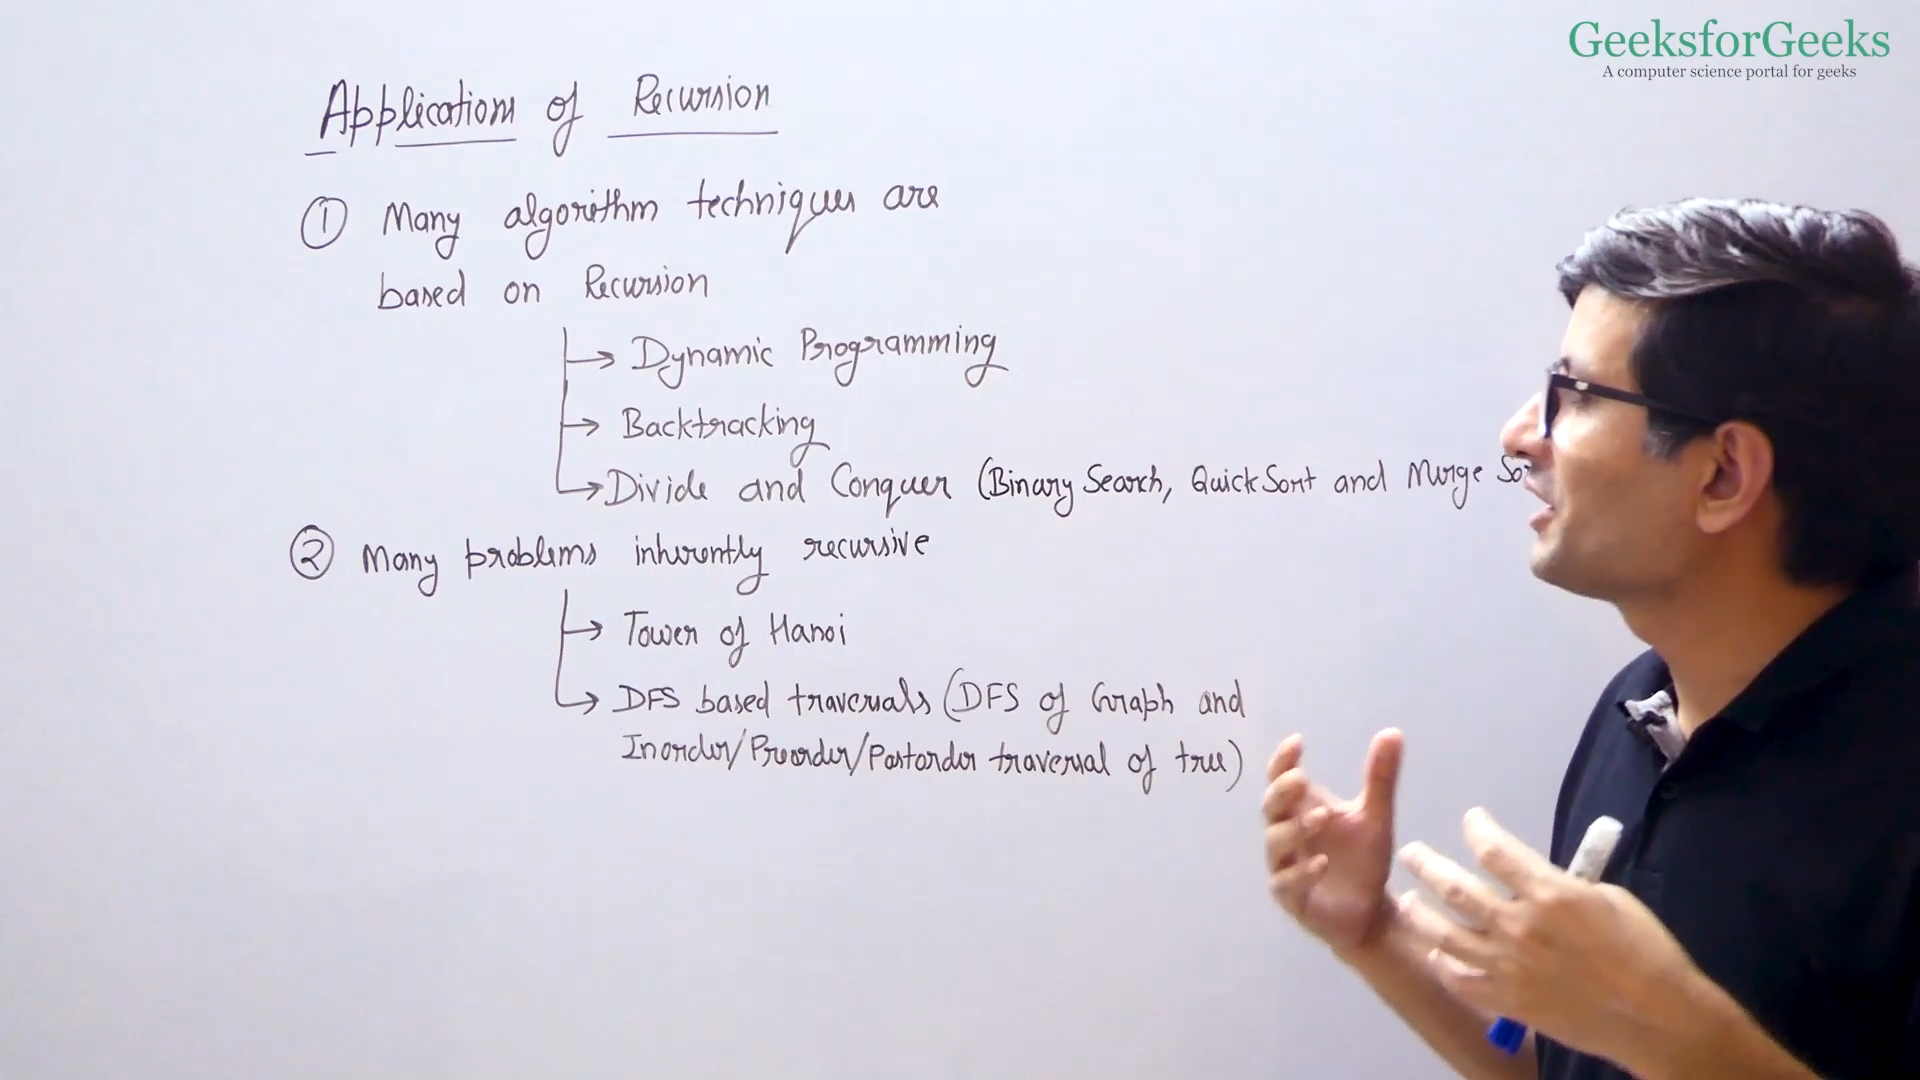 GeeksforGeeks
A computer science portal for geeks
Applications of Recursion
① Many algorithm techniques are
based on Recursion
→ Dynamic Programming
→ Backtracking
→ Divide and Conquer (Binary Search, Quick Sort and Merge So
② Many problems inherently recursive
→ Tower of Hanoi
→ DFS based traversals (DFS of Graph and
Inorder/Preorder/Postorder traversal of tree)